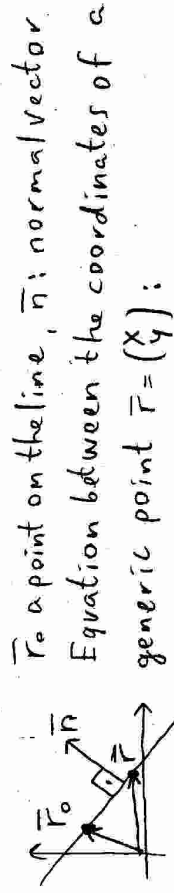 r̄₀ a point on the line, n̄: normal vector
Equation between the coordinates of a
generic point r̄ = (x y):
r̄₀
n̄
r̄